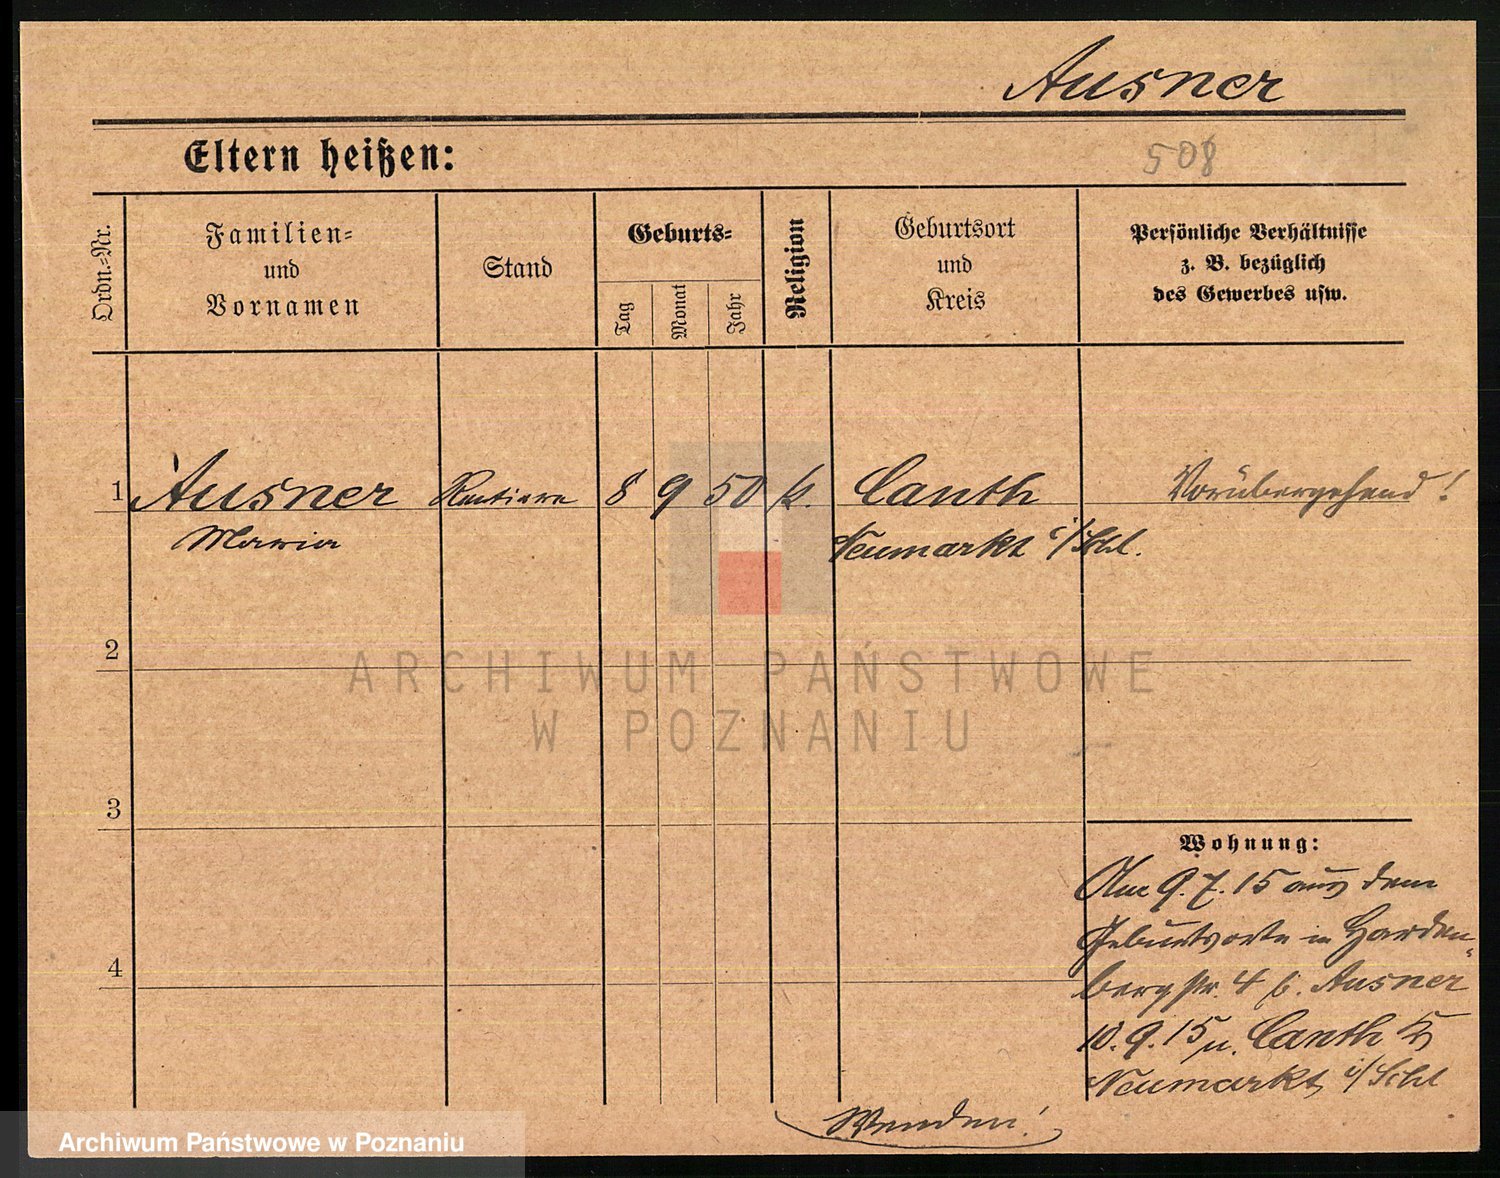 Ausner
Eltern heißen:
508
Ordn.=Nr.
Familien=
und
Vornamen
Stand
Geburts=
Tag
Monat
Jahr
Religion
Geburtsort
und
Kreis
Persönliche Verhältnisse
z. B. bezüglich
des Gewerbes usw.
1 Ausner Rentiere 8 9 50 k. Canth Vorübergehend!
Maria Neumarkt i/Schl.
2
ARCHIWUM PAŃSTWOWE
W POZNANIU
3
Wohnung:
Am 9.7.15 aus dem
Geburtsorte in Harden-
4
bergstr. 4 b. Ausner
10.9.15 n. Canth Kr
Neumarkt i/Schl
Wenden!
Archiwum Państwowe w Poznaniu